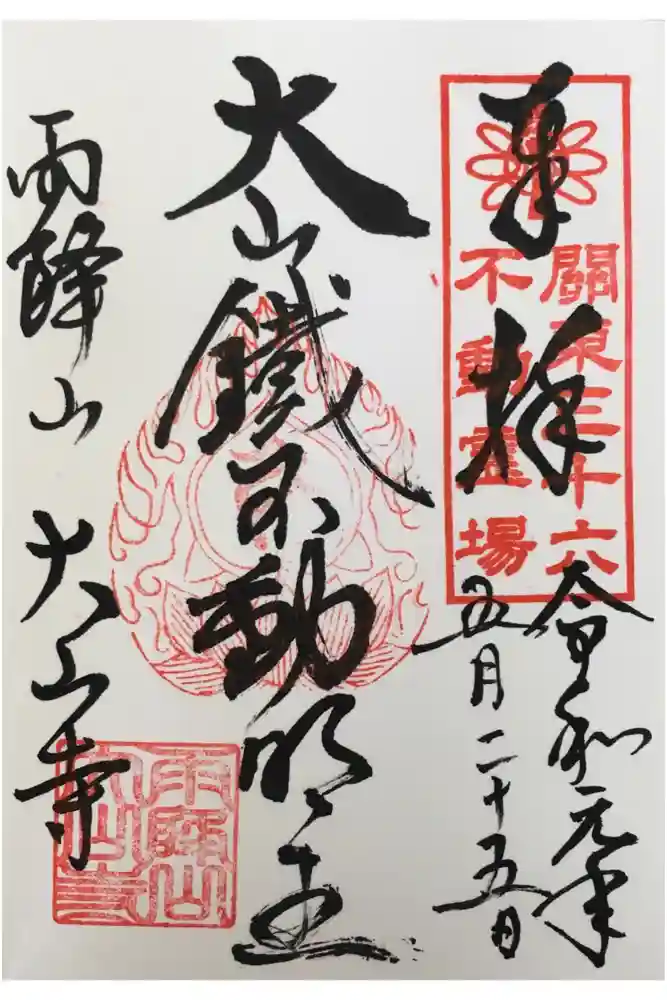 奉拝
關東三十六
不動霊場
令和元年
五月二十五日
大山鐵不動明王
雨降山 大山寺
雨降山
大山寺